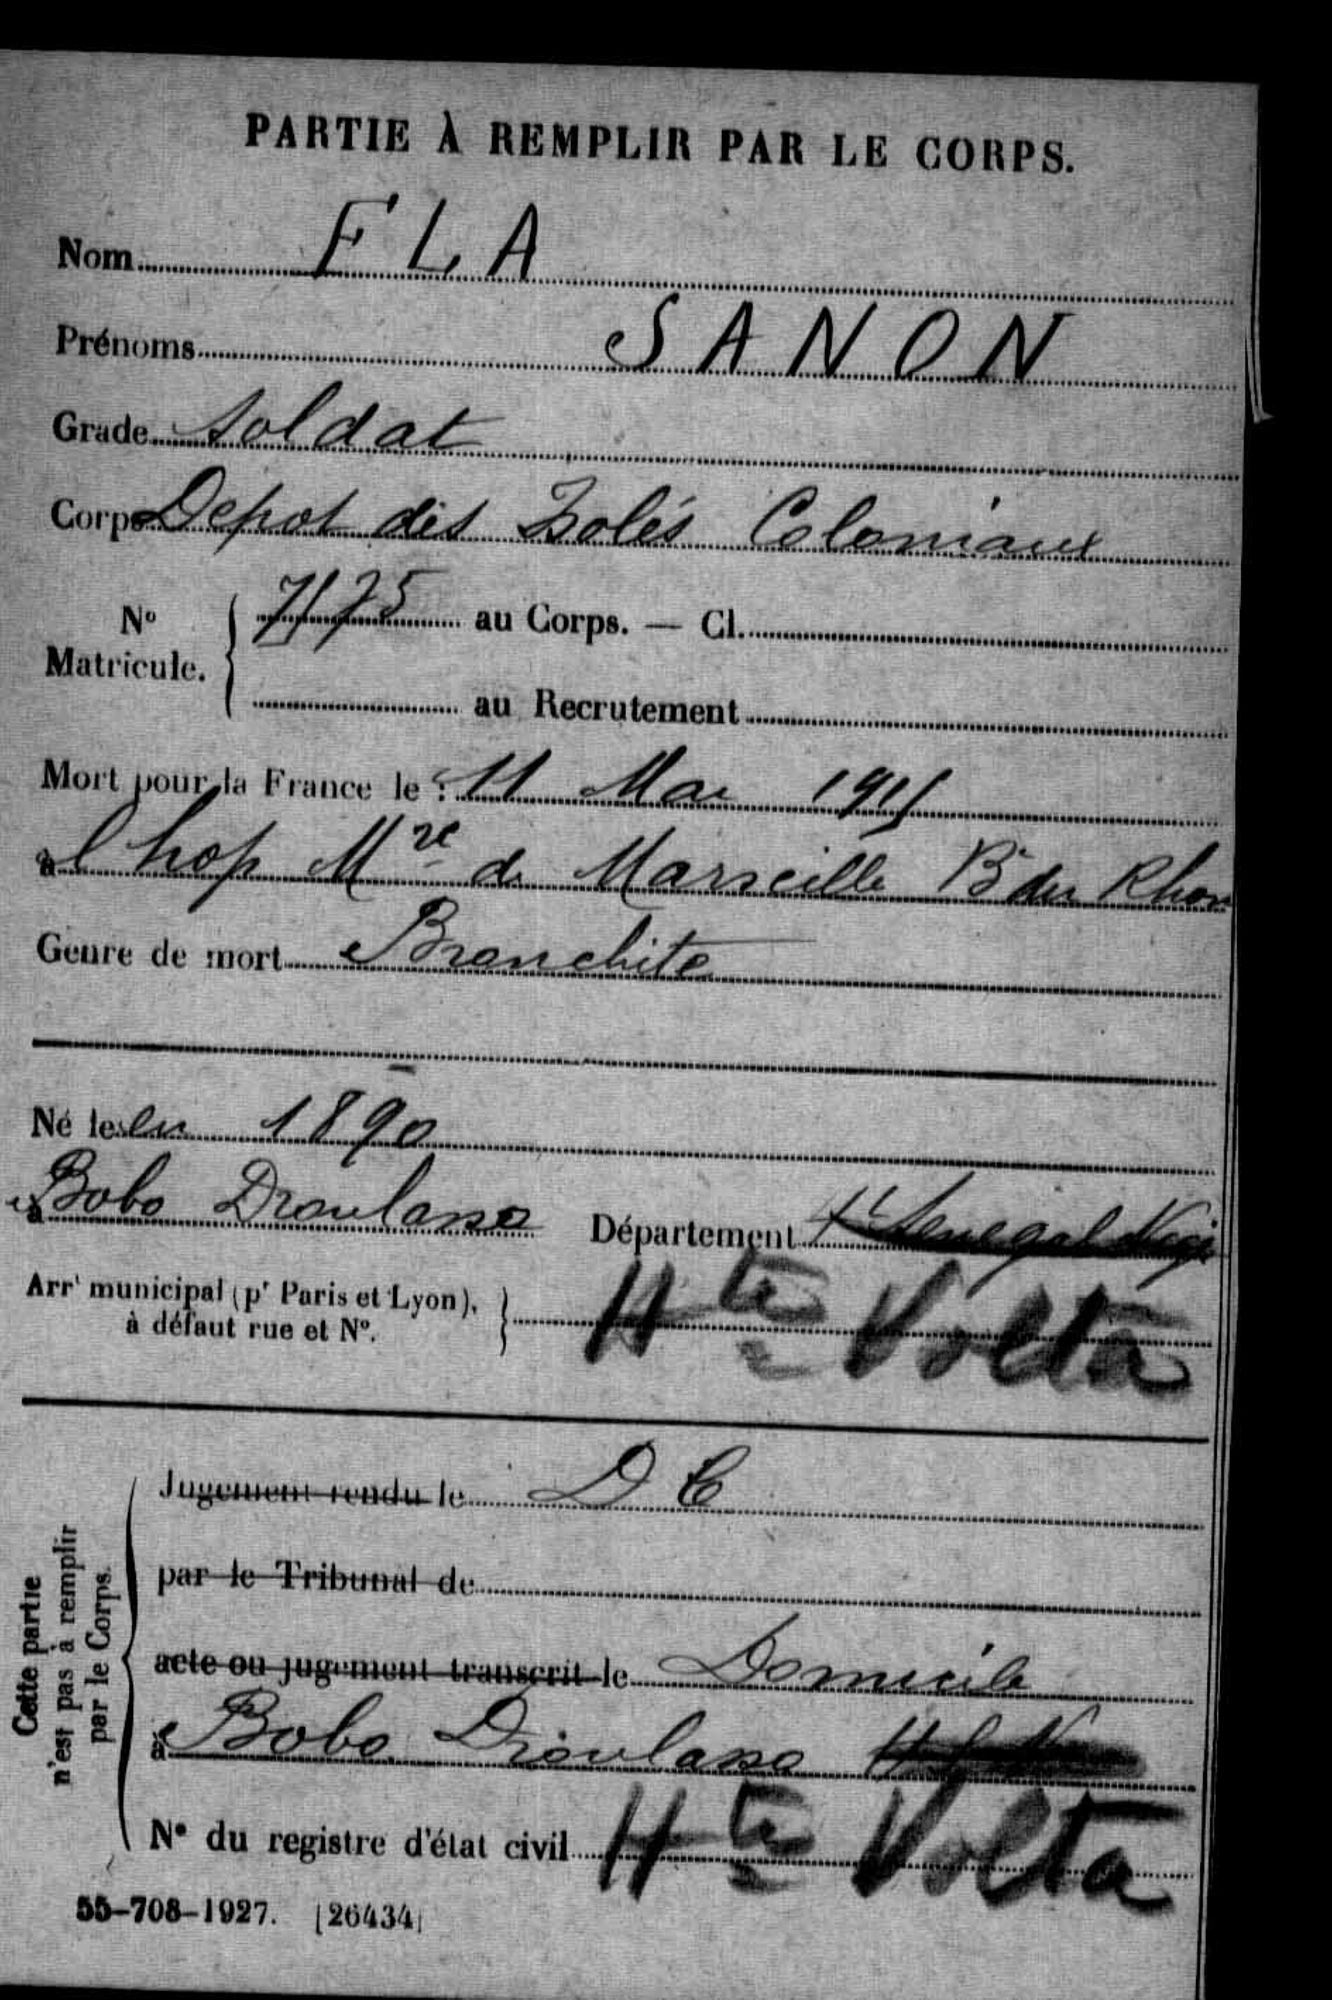 PARTIE À REMPLIR PAR LE CORPS.
Nom FLA
Prénoms SANON
Grade Soldat
Corps Depot des Isolés Coloniaux
N° Matricule. 7175 au Corps. — Cl.
au Recrutement
Mort pour la France le : 11 Mai 1915
à l'hop Mre de Marseille B du Rhon
Genre de mort Bronchite
Né le en 1890
à Bobo Dioulasso Département Ht Senegal Nig
Arrt municipal (pr Paris et Lyon), à défaut rue et N°. Hte Volta
Cette partie n'est pas à remplir par le Corps.
Jugement rendu le D C
par le Tribunal de
acte ou jugement transcrit le Domicile
à Bobo Dioulasso
N° du registre d'état civil Hte Volta
55-708-1927. [26434]